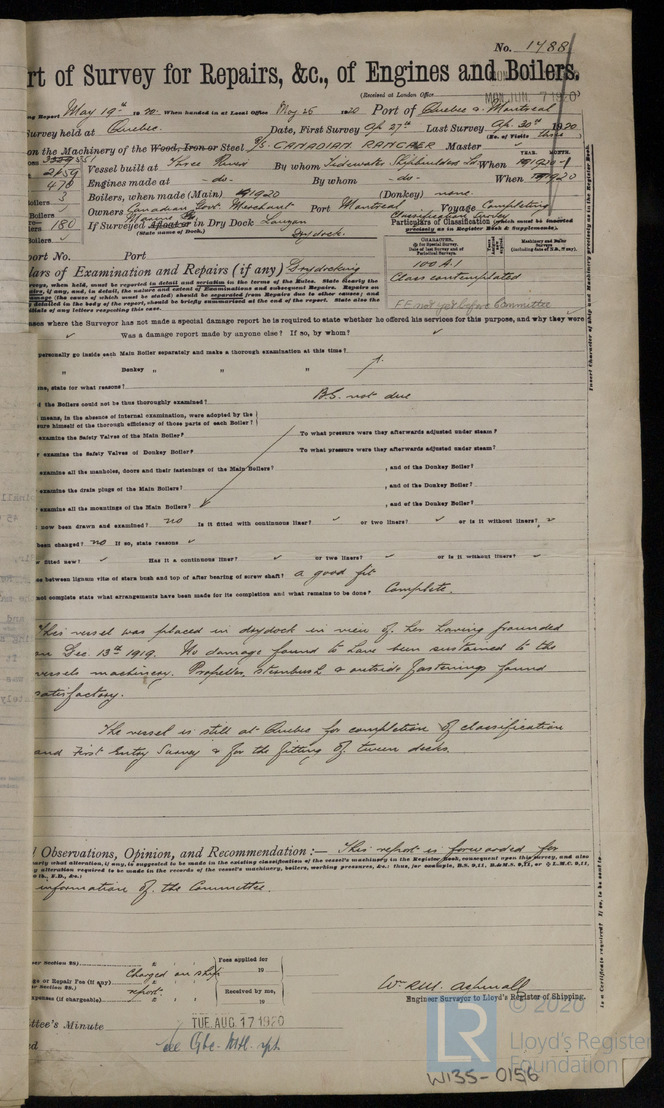 No. 1788
rt of Survey for Repairs, &c., of Engines and Boilers.
(Received at London Office MON. JUN. 7 1920)
ng Report May 19th 1920. When handed in at Local Office May 25 1920 Port of Quebec & Montreal
Survey held at Quebec. Date, First Survey Ap. 27th Last Survey Ap. 30th 1920
(No. of Visits three)
on the Machinery of the Wood, Iron or Steel S/S. CANADIAN RANGER Master
Vessel built at Three Rivers By whom Tidewater Shipbuilders Ld When 1920-
YEAR. MONTH.
2159
Engines made at - do - By whom - do - When 1920
470
Boilers, when made (Main) 1920 (Donkey) none
oilers 3
Owners Canadian Govt. Merchant Marine Port Montreal Voyage Completing Classification Survey
180 If Surveyed Afloat or in Dry Dock Lauzon Drydock.
(State name of Dock.)
Particulars of Classification (which must be inserted precisely as in Register Book & Supplements).
port No. Port
lars of Examination and Repairs (if any) Drydocking
100 A.1
Class contemplated
F.E. not yet before Committee
Insert Character of Ship and Machinery precisely as in the Register Book.
ason where the Surveyor has not made a special damage report he is required to state whether he offered his services for this purpose, and why they were
Was a damage report made by anyone else? If so, by whom?
personally go inside each Main Boiler separately and make a thorough examination at this time?
" Donkey " " "
ons, state for what reasons?
d the Boilers could not be thoroughly examined? B.S. not due
means, in the absence of internal examination, were adopted by the
ure himself of the thorough efficiency of those parts of each Boiler?
examine the Safety Valves of the Main Boiler? To what pressure were they afterwards adjusted under steam?
examine the Safety Valves of Donkey Boiler? To what pressure were they afterwards adjusted under steam?
examine all the manholes, doors and their fastenings of the Main Boilers? , and of the Donkey Boiler?
examine the drain plugs of the Main Boilers? , and of the Donkey Boiler?
examine all the mountings of the Main Boilers? , and of the Donkey Boiler?
now been drawn and examined? no Is it fitted with continuous liner? or two liners? or is it without liners?
been changed? no If so, state reasons
fitted new? Has it a continuous liner? or two liners? or is it without liners?
ce between lignum vitæ of stern bush and top of after bearing of screw shaft? a good fit
not complete state what arrangements have been made for its completion and what remains to be done? Complete.
This vessel was placed in drydock in view of her having grounded
on Dec. 13th 1919. No damage found to have been sustained to the
vessels machinery. Propeller, sternbush & outside fastenings found
satisfactory.
The vessel is still at Quebec for completion of classification
and First Entry Survey & for the fitting of tween decks.
l Observations, Opinion, and Recommendation:— This report is forwarded for
early what alteration, if any, is suggested to be made in the existing classification of the vessel's machinery in the Register Book, consequent upon this survey, and also
y alteration required to be made in the records of the vessel's machinery, boilers, working pressures, &c.: thus, for example, B.S. 9,11, B.&M.S. 9,11, or L.M.C. 9,11,
information of the Committee.
Fees applied for
Charged on ship
19
ge or Repair Fee (if any) report
Received by me,
xpenses (if chargeable)
19
Engineer Surveyor to Lloyd's Register of Shipping.
ttee's Minute TUE. AUG. 17 1920
Is a Certificate required? If so, to be sent to
© 2020
LR
Lloyd's Register
Foundation
W135-0156